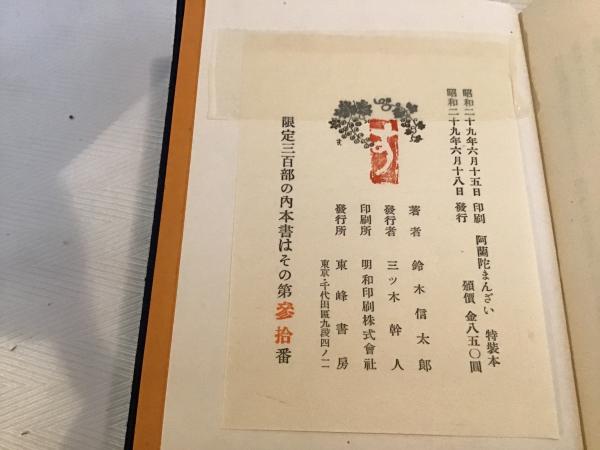 昭和二十九年六月十五日 印刷
昭和二十九年六月十八日 發行
阿蘭陀まんざい 特裝本
頒價 金八五〇圓
著者 鈴木信太郎
發行者 三ツ木幹人
印刷所 明和印刷株式會社
發行所 東峰書房
東京・千代田區九段四ノ二
す
限定三百部の內本書はその第參拾番